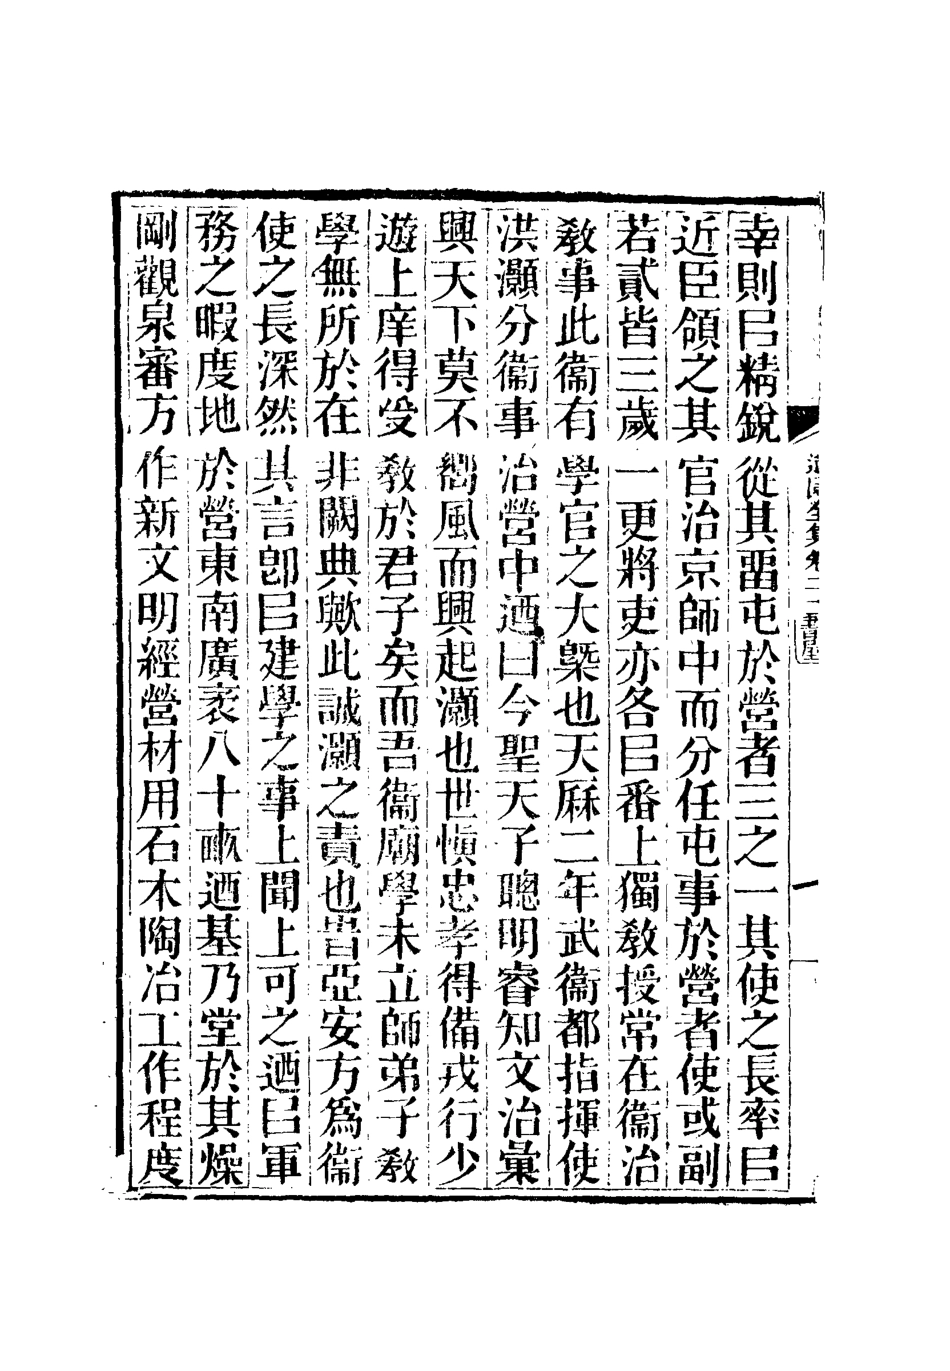 幸則㠯精銳從其畱屯於營者三之一其使之長率㠯
近臣領之其官治京師中而分任屯事於營者使或副
若貳皆三歲一更將吏亦各㠯番上獨敎授常在衞治
敎事此衞有學官之大槩也天厤二年武衞都指揮使
洪灝分衞事治營中迺曰今聖天子聰明睿知文治彙
興天下莫不嚮風而興起灝也世愼忠孝得備戎行少
遊上庠得受敎於君子矣而吾衞廟學未立師弟子敎
學無所於在非闕典歟此誠灝之責也昔亞安方爲衞
使之長深然其言卽㠯建學之事上聞上可之迺㠯軍
務之暇度地於營東南廣袤八十畝迺基乃堂於其燥
剛觀泉審方作新文明經營材用石木陶冶工作程度